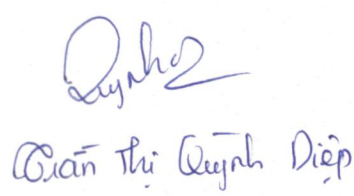 Quynh
Trần Thị Quỳnh Diệp